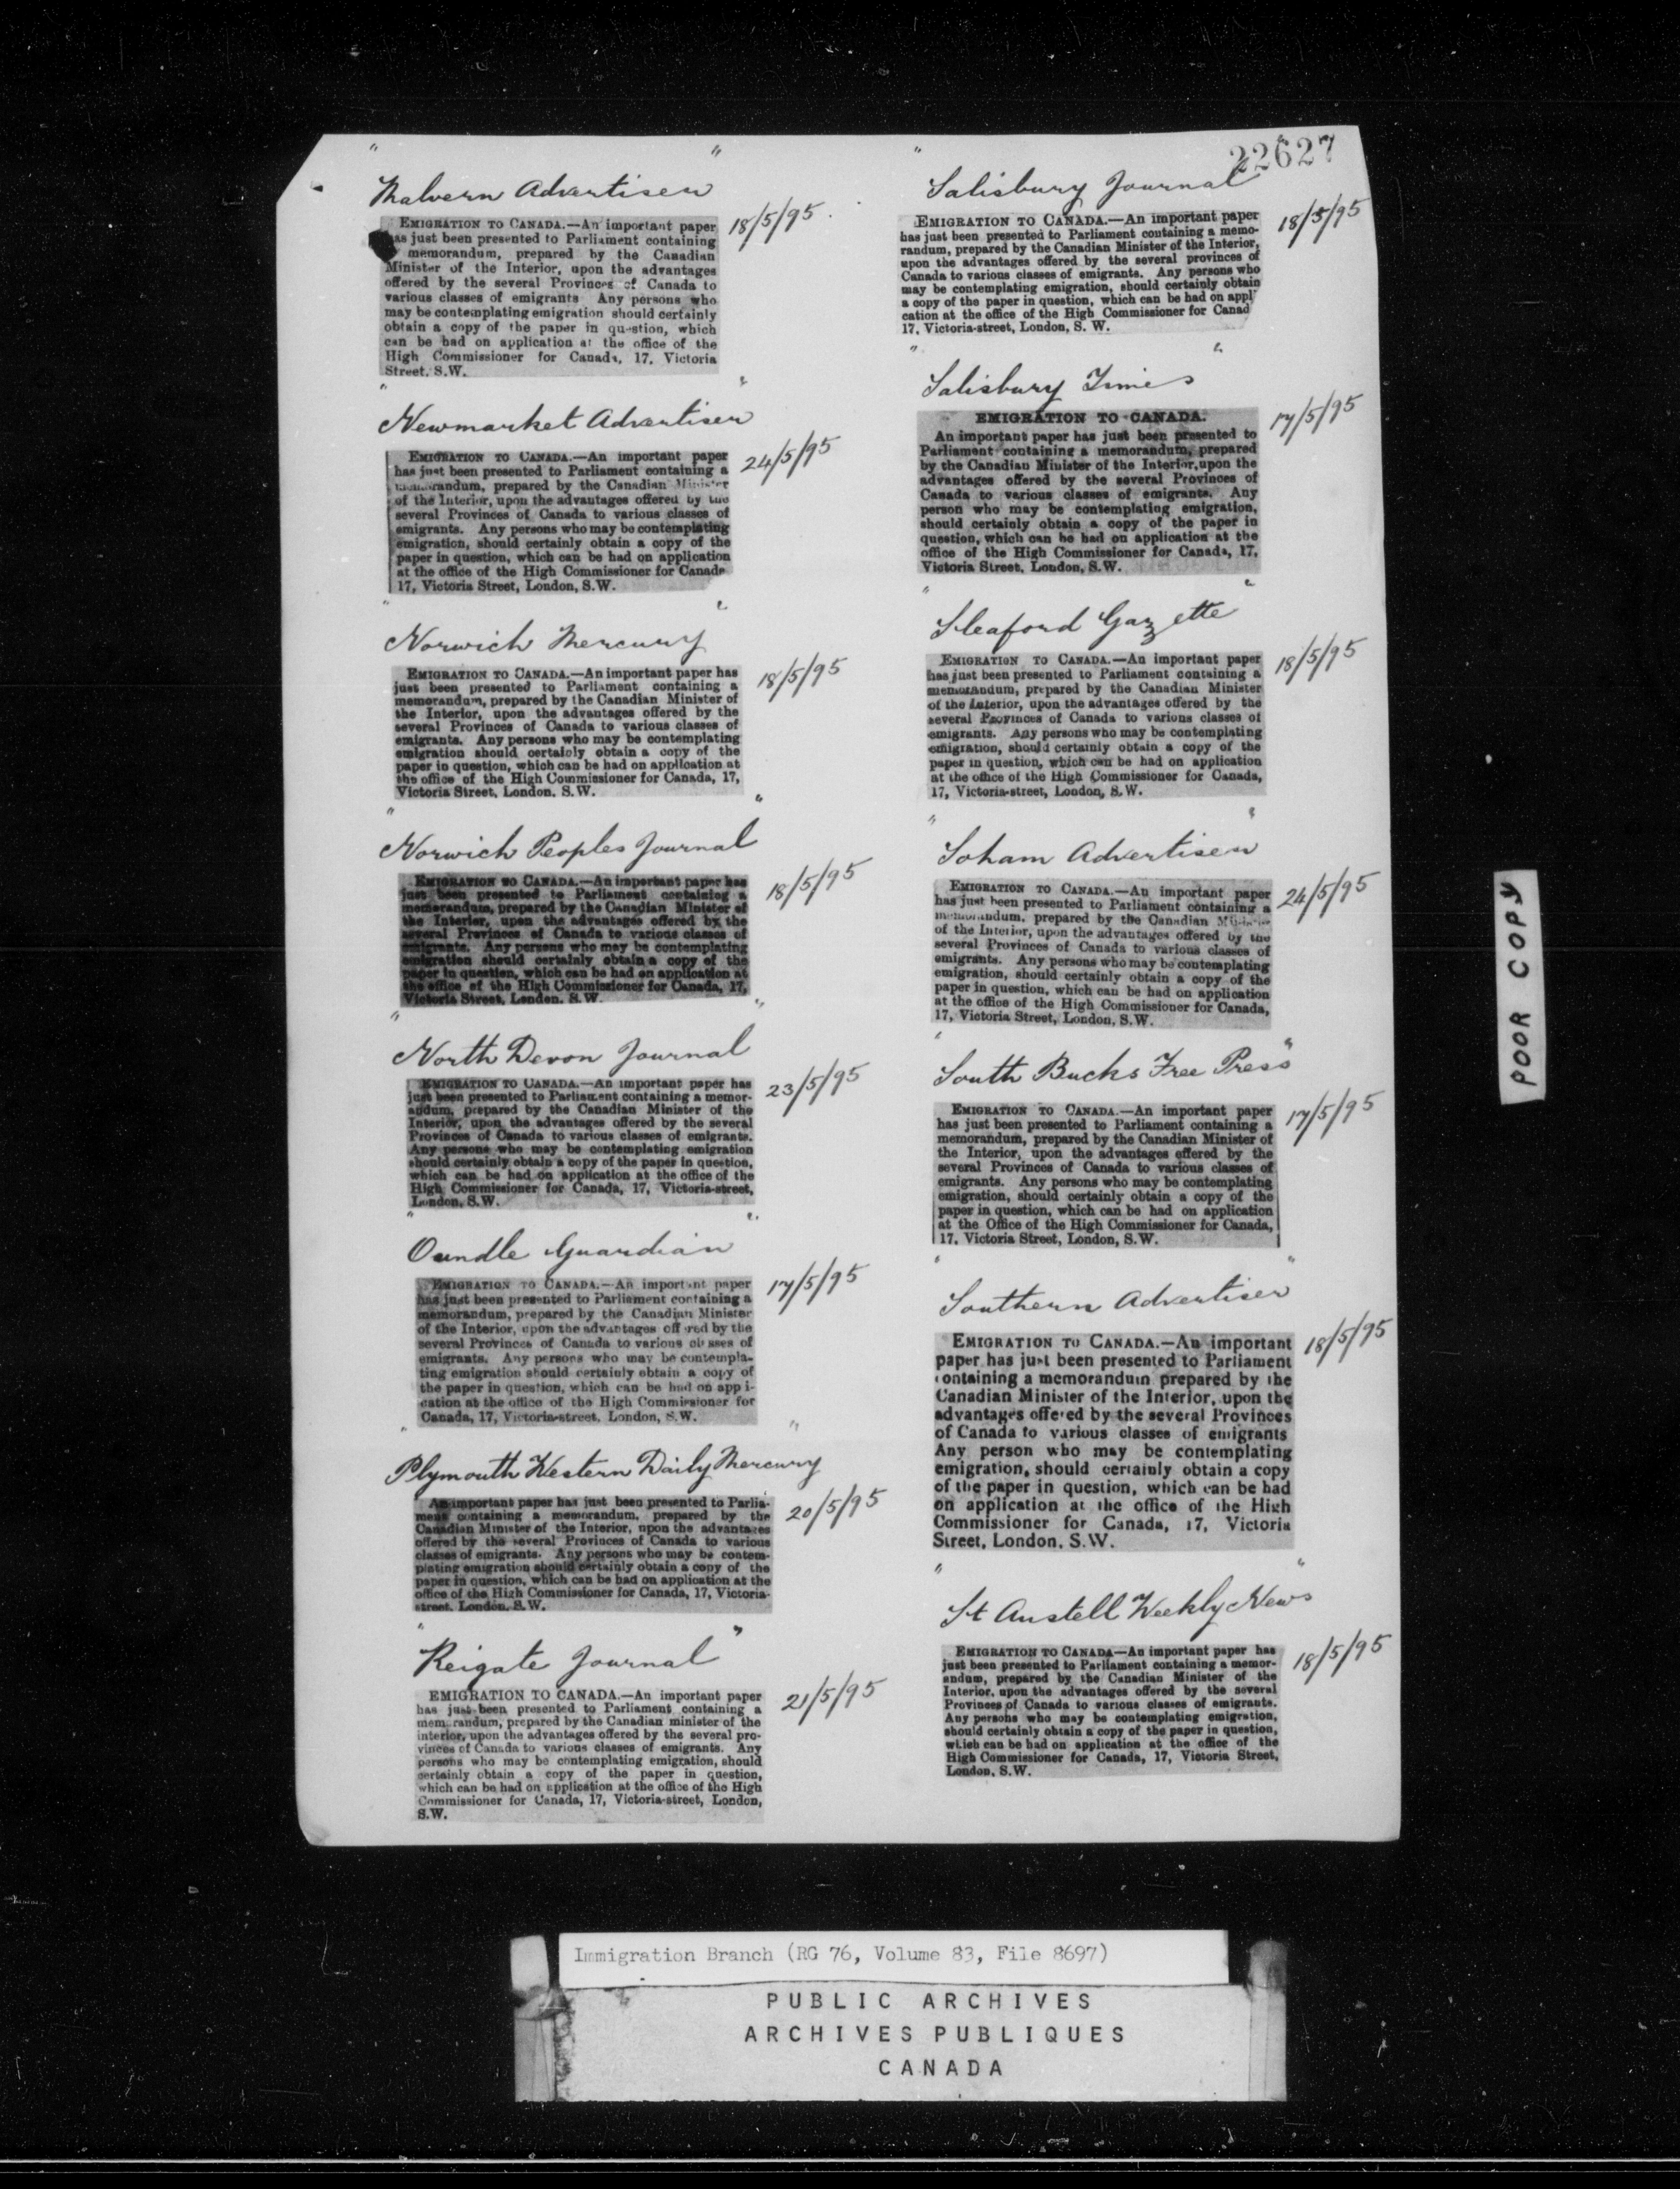 22627
" Malvern Advertiser "
18/5/95
EMIGRATION TO CANADA.—An important paper
has just been presented to Parliament containing
memorandum, prepared by the Canadian
Minister of the Interior, upon the advantages
offered by the several Provinces of Canada to
various classes of emigrants Any persons who
may be contemplating emigration should certainly
obtain a copy of the paper in question, which
can be had on application at the office of the
High Commissioner for Canada, 17, Victoria
Street, S.W.
" Newmarket Advertiser "
24/5/95
EMIGRATION TO CANADA.—An important paper
has just been presented to Parliament containing a
memorandum, prepared by the Canadian Minister
of the Interior, upon the advantages offered by the
several Provinces of Canada to various classes of
emigrants. Any persons who may be contemplating
emigration, should certainly obtain a copy of the
paper in question, which can be had on application
at the office of the High Commissioner for Canada
17, Victoria Street, London, S.W.
" Norwich Mercury "
18/5/95
EMIGRATION TO CANADA.—An important paper has
just been presented to Parliament containing a
memorandum, prepared by the Canadian Minister of
the Interior, upon the advantages offered by the
several Provinces of Canada to various classes of
emigrants. Any persons who may be contemplating
emigration should certainly obtain a copy of the
paper in question, which can be had on application at
the office of the High Commissioner for Canada, 17,
Victoria Street, London. S.W.
" Norwich Peoples Journal "
18/5/95
EMIGRATION TO CANADA.—An important paper has
just been presented to Parliament containing a
memorandum, prepared by the Canadian Minister of
the Interior, upon the advantages offered by the
several Provinces of Canada to various classes of
emigrants. Any persons who may be contemplating
emigration should certainly obtain a copy of the
paper in question, which can be had on application at
the office of the High Commissioner for Canada, 17,
Victoria Street, London. S.W.
" North Devon Journal "
23/5/95
EMIGRATION TO CANADA.—An important paper has
just been presented to Parliament containing a memor-
andum, prepared by the Canadian Minister of the
Interior, upon the advantages offered by the several
Provinces of Canada to various classes of emigrants.
Any persons who may be contemplating emigration
should certainly obtain a copy of the paper in question,
which can be had on application at the office of the
High Commissioner for Canada, 17, Victoria-street,
London, S.W.
" Oundle Guardian "
17/5/95
EMIGRATION TO CANADA.—An important paper
has just been presented to Parliament containing a
memorandum, prepared by the Canadian Minister
of the Interior, upon the advantages off red by the
several Provinces of Canada to various classes of
emigrants. Any persons who may be contempla-
ting emigration should certainly obtain a copy of
the paper in question, which can be had on app i-
cation at the office of the High Commissioner for
Canada, 17, Victoria-street, London, S.W.
" Plymouth Western Daily Mercury "
20/5/95
An important paper has just been presented to Parlia-
ment containing a memorandum, prepared by the
Canadian Minister of the Interior, upon the advantages
offered by the several Provinces of Canada to various
classes of emigrants. Any persons who may be contem-
plating emigration should certainly obtain a copy of the
paper in question, which can be had on application at the
office of the High Commissioner for Canada, 17, Victoria-
street, London, S.W.
" Reigate Journal "
21/5/95
EMIGRATION TO CANADA.—An important paper
has just been presented to Parliament containing a
mem randum, prepared by the Canadian minister of the
interior, upon the advantages offered by the several pro-
vinces of Canada to various classes of emigrants. Any
persons who may be contemplating emigration, should
certainly obtain a copy of the paper in question,
which can be had on application at the office of the High
Commissioner for Canada, 17, Victoria-street, London,
S.W.
" Salisbury Journal "
18/5/95
EMIGRATION TO CANADA.—An important paper
has just been presented to Parliament containing a memo-
randum, prepared by the Canadian Minister of the Interior,
upon the advantages offered by the several provinces of
Canada to various classes of emigrants. Any persons who
may be contemplating emigration, should certainly obtain
a copy of the paper in question, which can be had on appl
cation at the office of the High Commissioner for Canad
17, Victoria-street, London, S. W.
" Salisbury Times "
17/5/95
EMIGRATION TO CANADA.
An important paper has just been presented to
Parliament containing a memorandum, prepared
by the Canadian Minister of the Interior, upon the
advantages offered by the several Provinces of
Canada to various classes of emigrants. Any
person who may be contemplating emigration,
should certainly obtain a copy of the paper in
question, which can be had on application at the
office of the High Commissioner for Canada, 17,
Victoria Street, London, S.W.
" Sleaford Gazzette "
18/5/95
EMIGRATION TO CANADA.—An important paper
has just been presented to Parliament containing a
memorandum, prepared by the Canadian Minister
of the Interior, upon the advantages offered by the
several Provinces of Canada to various classes of
emigrants. Any persons who may be contemplating
emigration, should certainly obtain a copy of the
paper in question, which can be had on application
at the office of the High Commissioner for Canada,
17, Victoria-street, London, S.W.
" Soham Advertiser "
24/5/95
EMIGRATION TO CANADA.—An important paper
has just been presented to Parliament containing a
memorandum, prepared by the Canadian Minister
of the Interior, upon the advantages offered by the
several Provinces of Canada to various classes of
emigrants. Any persons who may be contemplating
emigration, should certainly obtain a copy of the
paper in question, which can be had on application
at the office of the High Commissioner for Canada,
17, Victoria Street, London, S.W.
" South Bucks Free Press "
17/5/95
EMIGRATION TO CANADA.—An important paper
has just been presented to Parliament containing a
memorandum, prepared by the Canadian Minister of
the Interior, upon the advantages offered by the
several Provinces of Canada to various classes of
emigrants. Any persons who may be contemplating
emigration, should certainly obtain a copy of the
paper in question, which can be had on application
at the Office of the High Commissioner for Canada,
17, Victoria Street, London, S.W.
" Southern Advertiser "
18/5/95
EMIGRATION TO CANADA.—An important
paper has just been presented to Parliament
containing a memorandum prepared by the
Canadian Minister of the Interior, upon the
advantages offered by the several Provinces
of Canada to various classes of emigrants
Any person who may be contemplating
emigration, should certainly obtain a copy
of the paper in question, which can be had
on application at the office of the High
Commissioner for Canada, 17, Victoria
Street, London, S.W.
" St Austell Weekly News "
18/5/95
EMIGRATION TO CANADA—An important paper has
just been presented to Parliament containing a memor-
andum, prepared by the Canadian Minister of the
Interior, upon the advantages offered by the several
Provinces of Canada to various classes of emigrants.
Any persons who may be contemplating emigration,
should certainly obtain a copy of the paper in question,
which can be had on application at the office of the
High Commissioner for Canada, 17, Victoria Street,
London, S.W.
POOR COPY
Immigration Branch (RG 76, Volume 83, File 8697)
PUBLIC ARCHIVES
ARCHIVES PUBLIQUES
CANADA